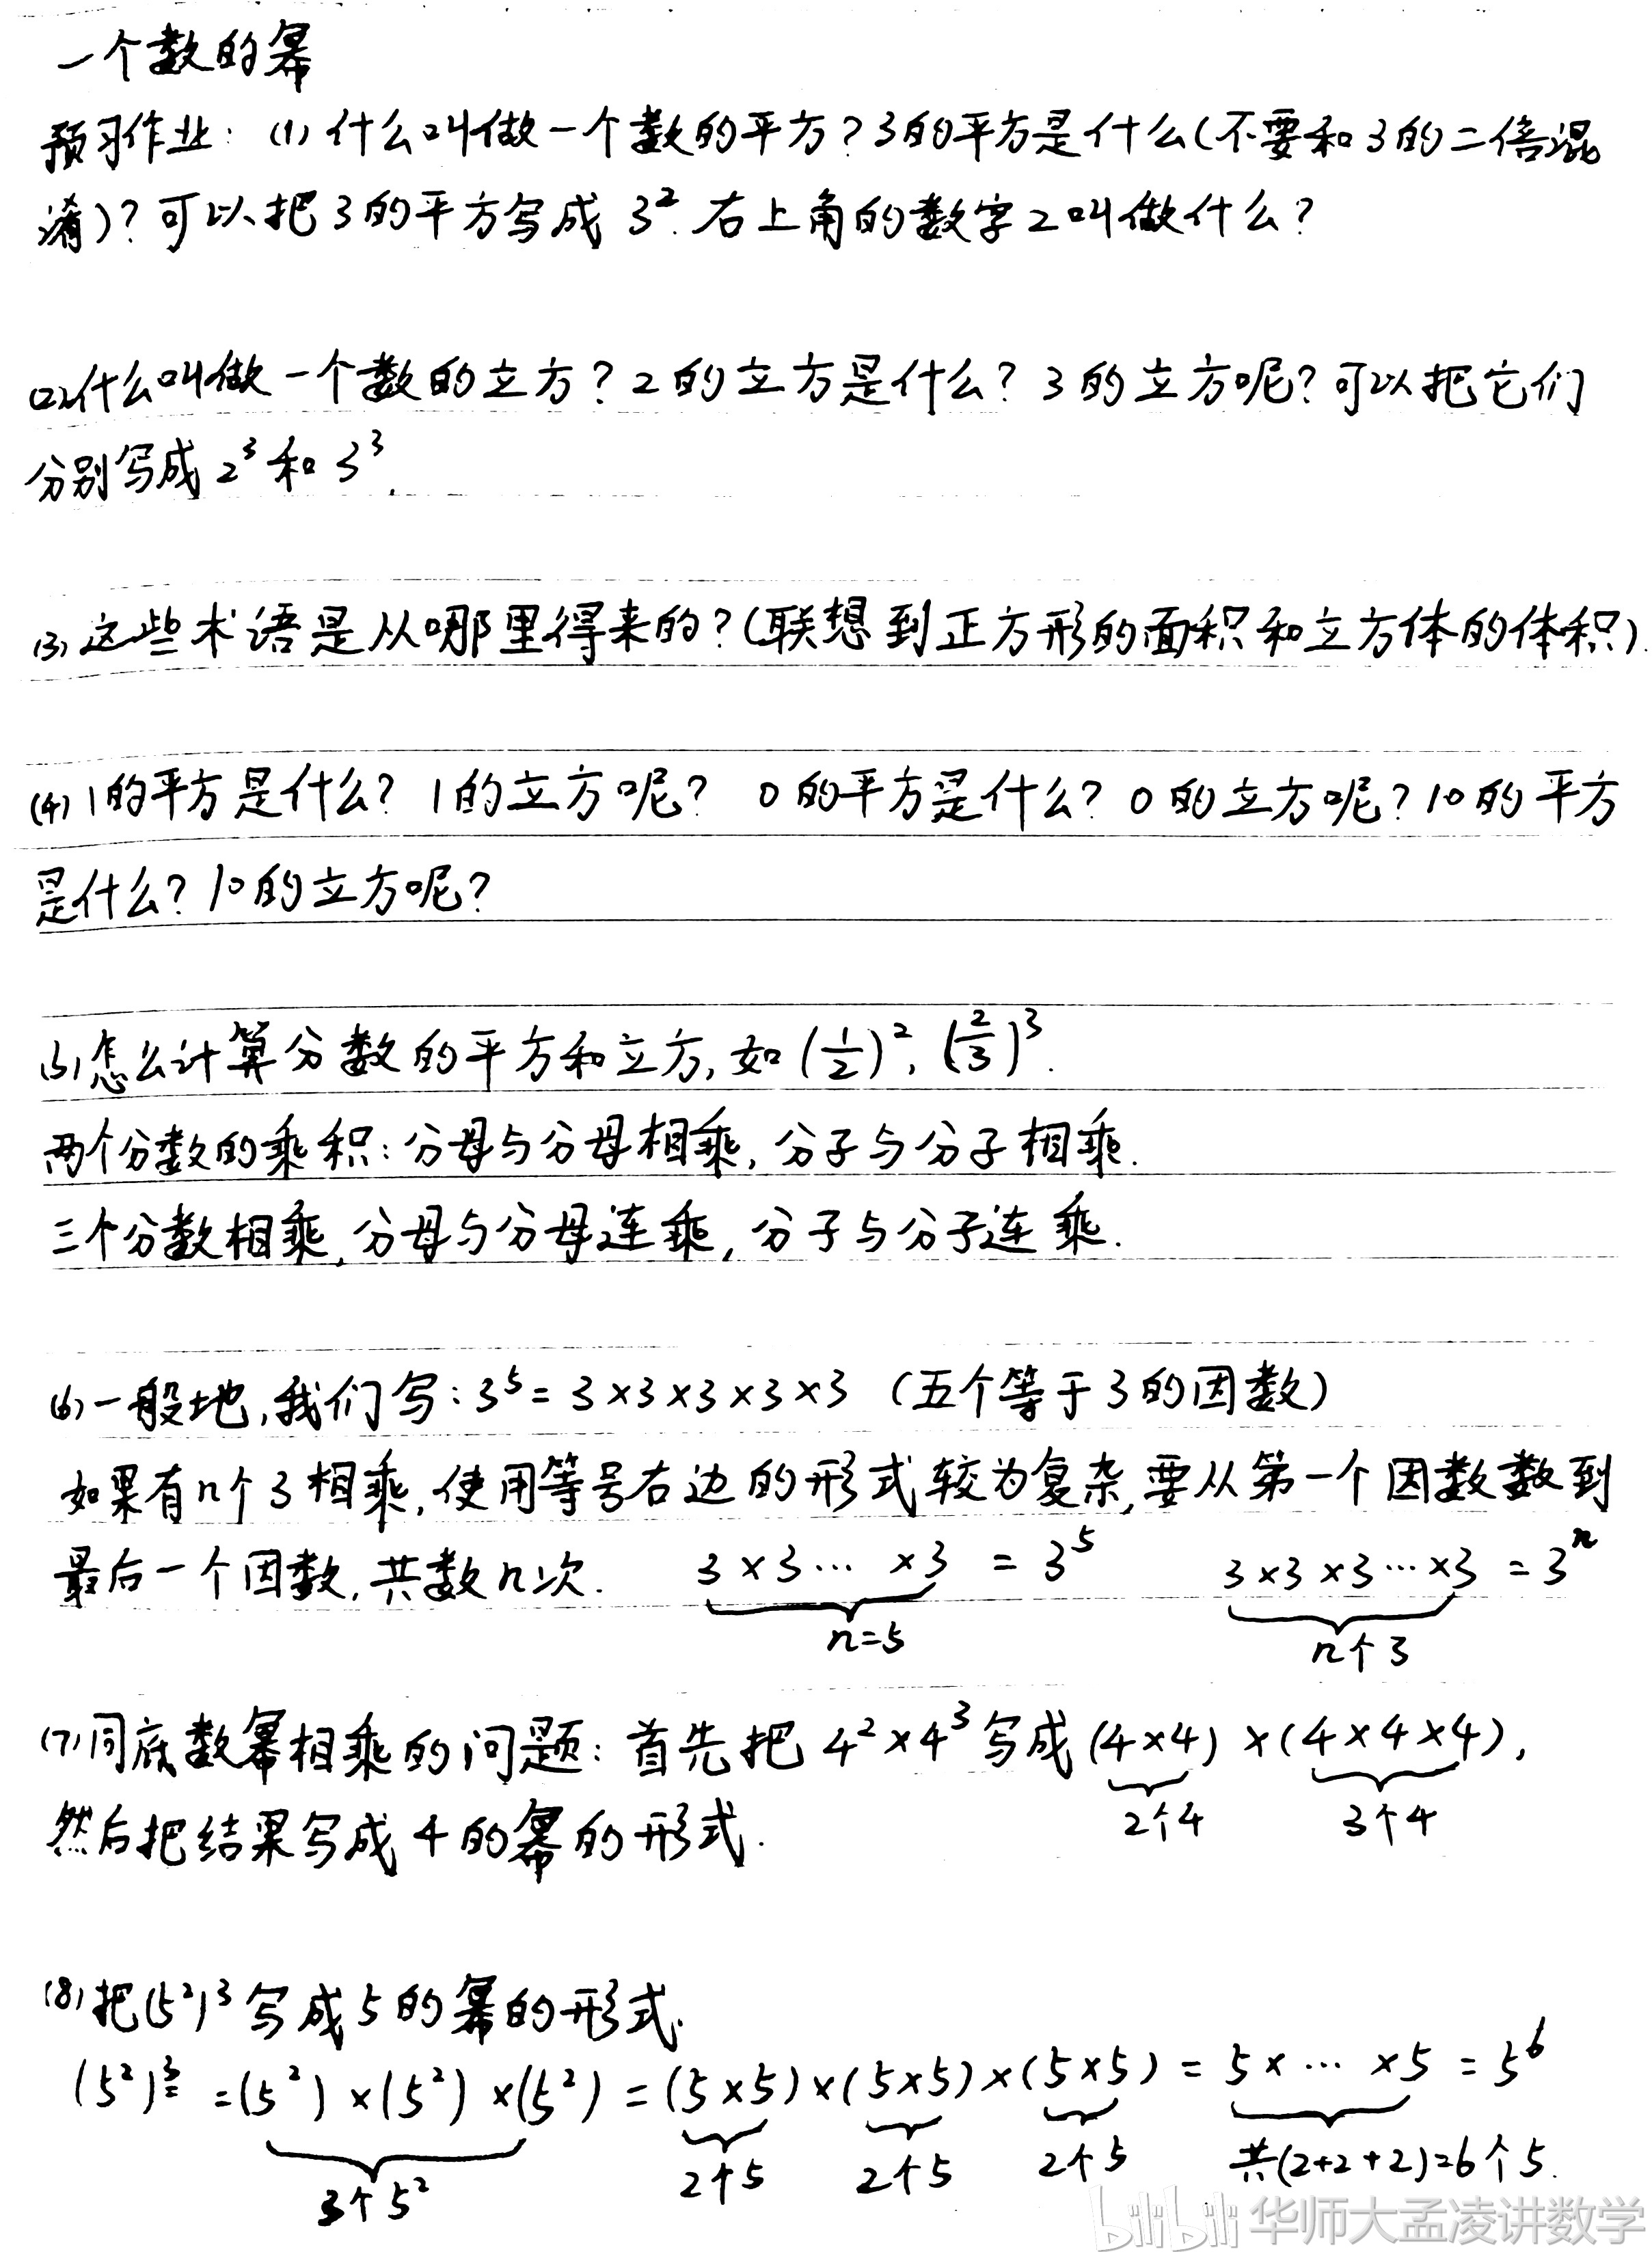 一个数的幂
预习作业：(1)什么叫做一个数的平方？3的平方是什么(不要和3的二倍混
淆)？可以把3的平方写成 3². 右上角的数字2叫做什么？
(2)什么叫做一个数的立方？2的立方是什么？3的立方呢？可以把它们
分别写成 2³ 和 3³.
(3)这些术语是从哪里得来的？(联想到正方形的面积和立方体的体积).
(4)1的平方是什么？1的立方呢？ 0的平方是什么？0的立方呢？10的平方
是什么？10的立方呢？
(5)怎么计算分数的平方和立方,如 (1/2)², (2/3)³.
两个分数的乘积：分母与分母相乘,分子与分子相乘.
三个分数相乘,分母与分母连乘,分子与分子连乘.
(6)一般地,我们写：3⁵=3×3×3×3×3 (五个等于3的因数)
如果有n个3相乘,使用等号右边的形式较为复杂,要从第一个因数数到
最后一个因数,共数n次. 3×3⋯ ×3 = 3⁵ 3×3×3⋯×3 = 3ⁿ
n=5 n个3
(7)同底数幂相乘的问题：首先把 4²×4³ 写成(4×4)×(4×4×4),
2个4 3个4
然后把结果写成4的幂的形式.
(8)把(5²)³写成5的幂的形式.
(5²)³ =(5²)×(5²)×(5²)=(5×5)×(5×5)×(5×5)=5×⋯×5=5⁶
3个5² 2个5 2个5 2个5 共(2+2+2)=6个5.
bilibili 华师大孟凌讲数学